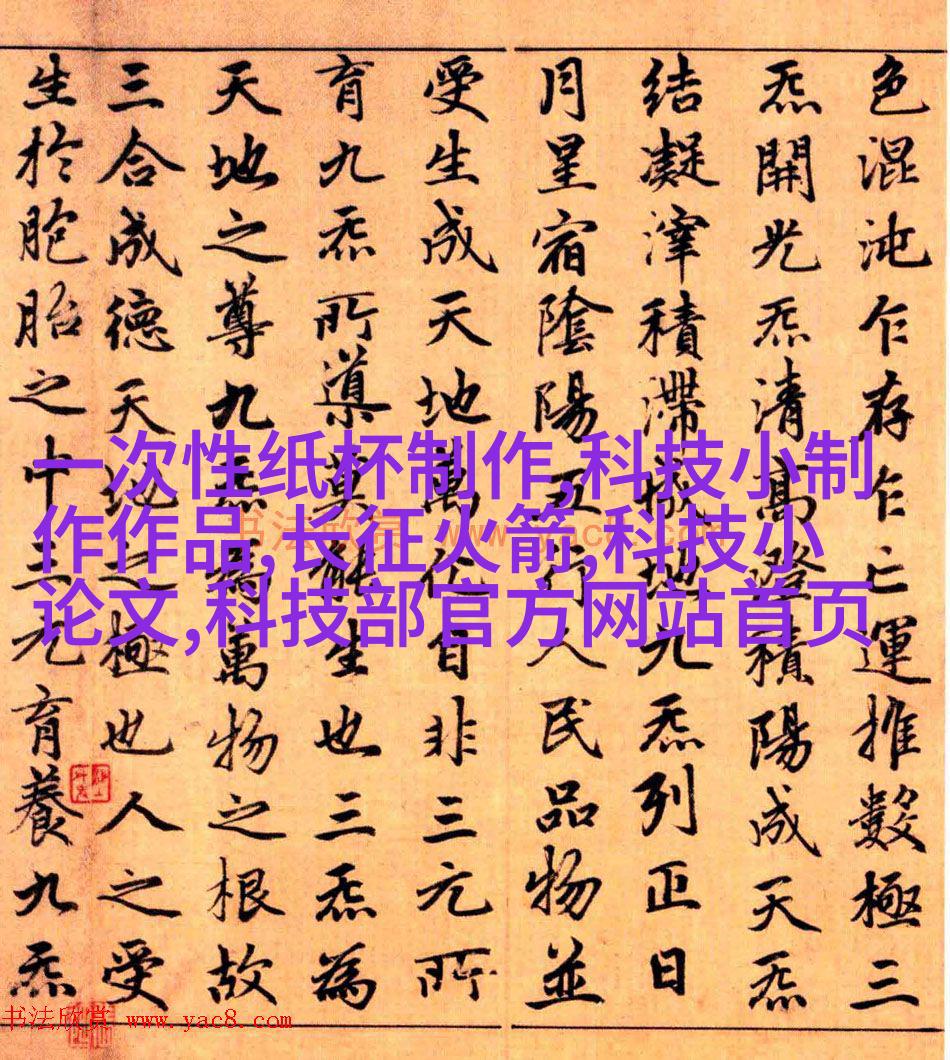 色混沌乍存乍亡運推數極三
炁開光炁清高澄積陽成天炁
結凝滓積滯成地九炁列正日
月星宿陰陽五行人民品物並
受生成天地萬化自非三元所
育九炁所導莫能生也三炁為
天地之尊九炁為萬物之根故
三合成德天地之極也人之受
生於胞胎之中三元育養九炁
一次性纸杯制作,科技小制
作作品,长征火箭,科技小
论文,科技部官方网站首页
书法欣赏 www.yac8.com
书法欣赏 www.yac8.com